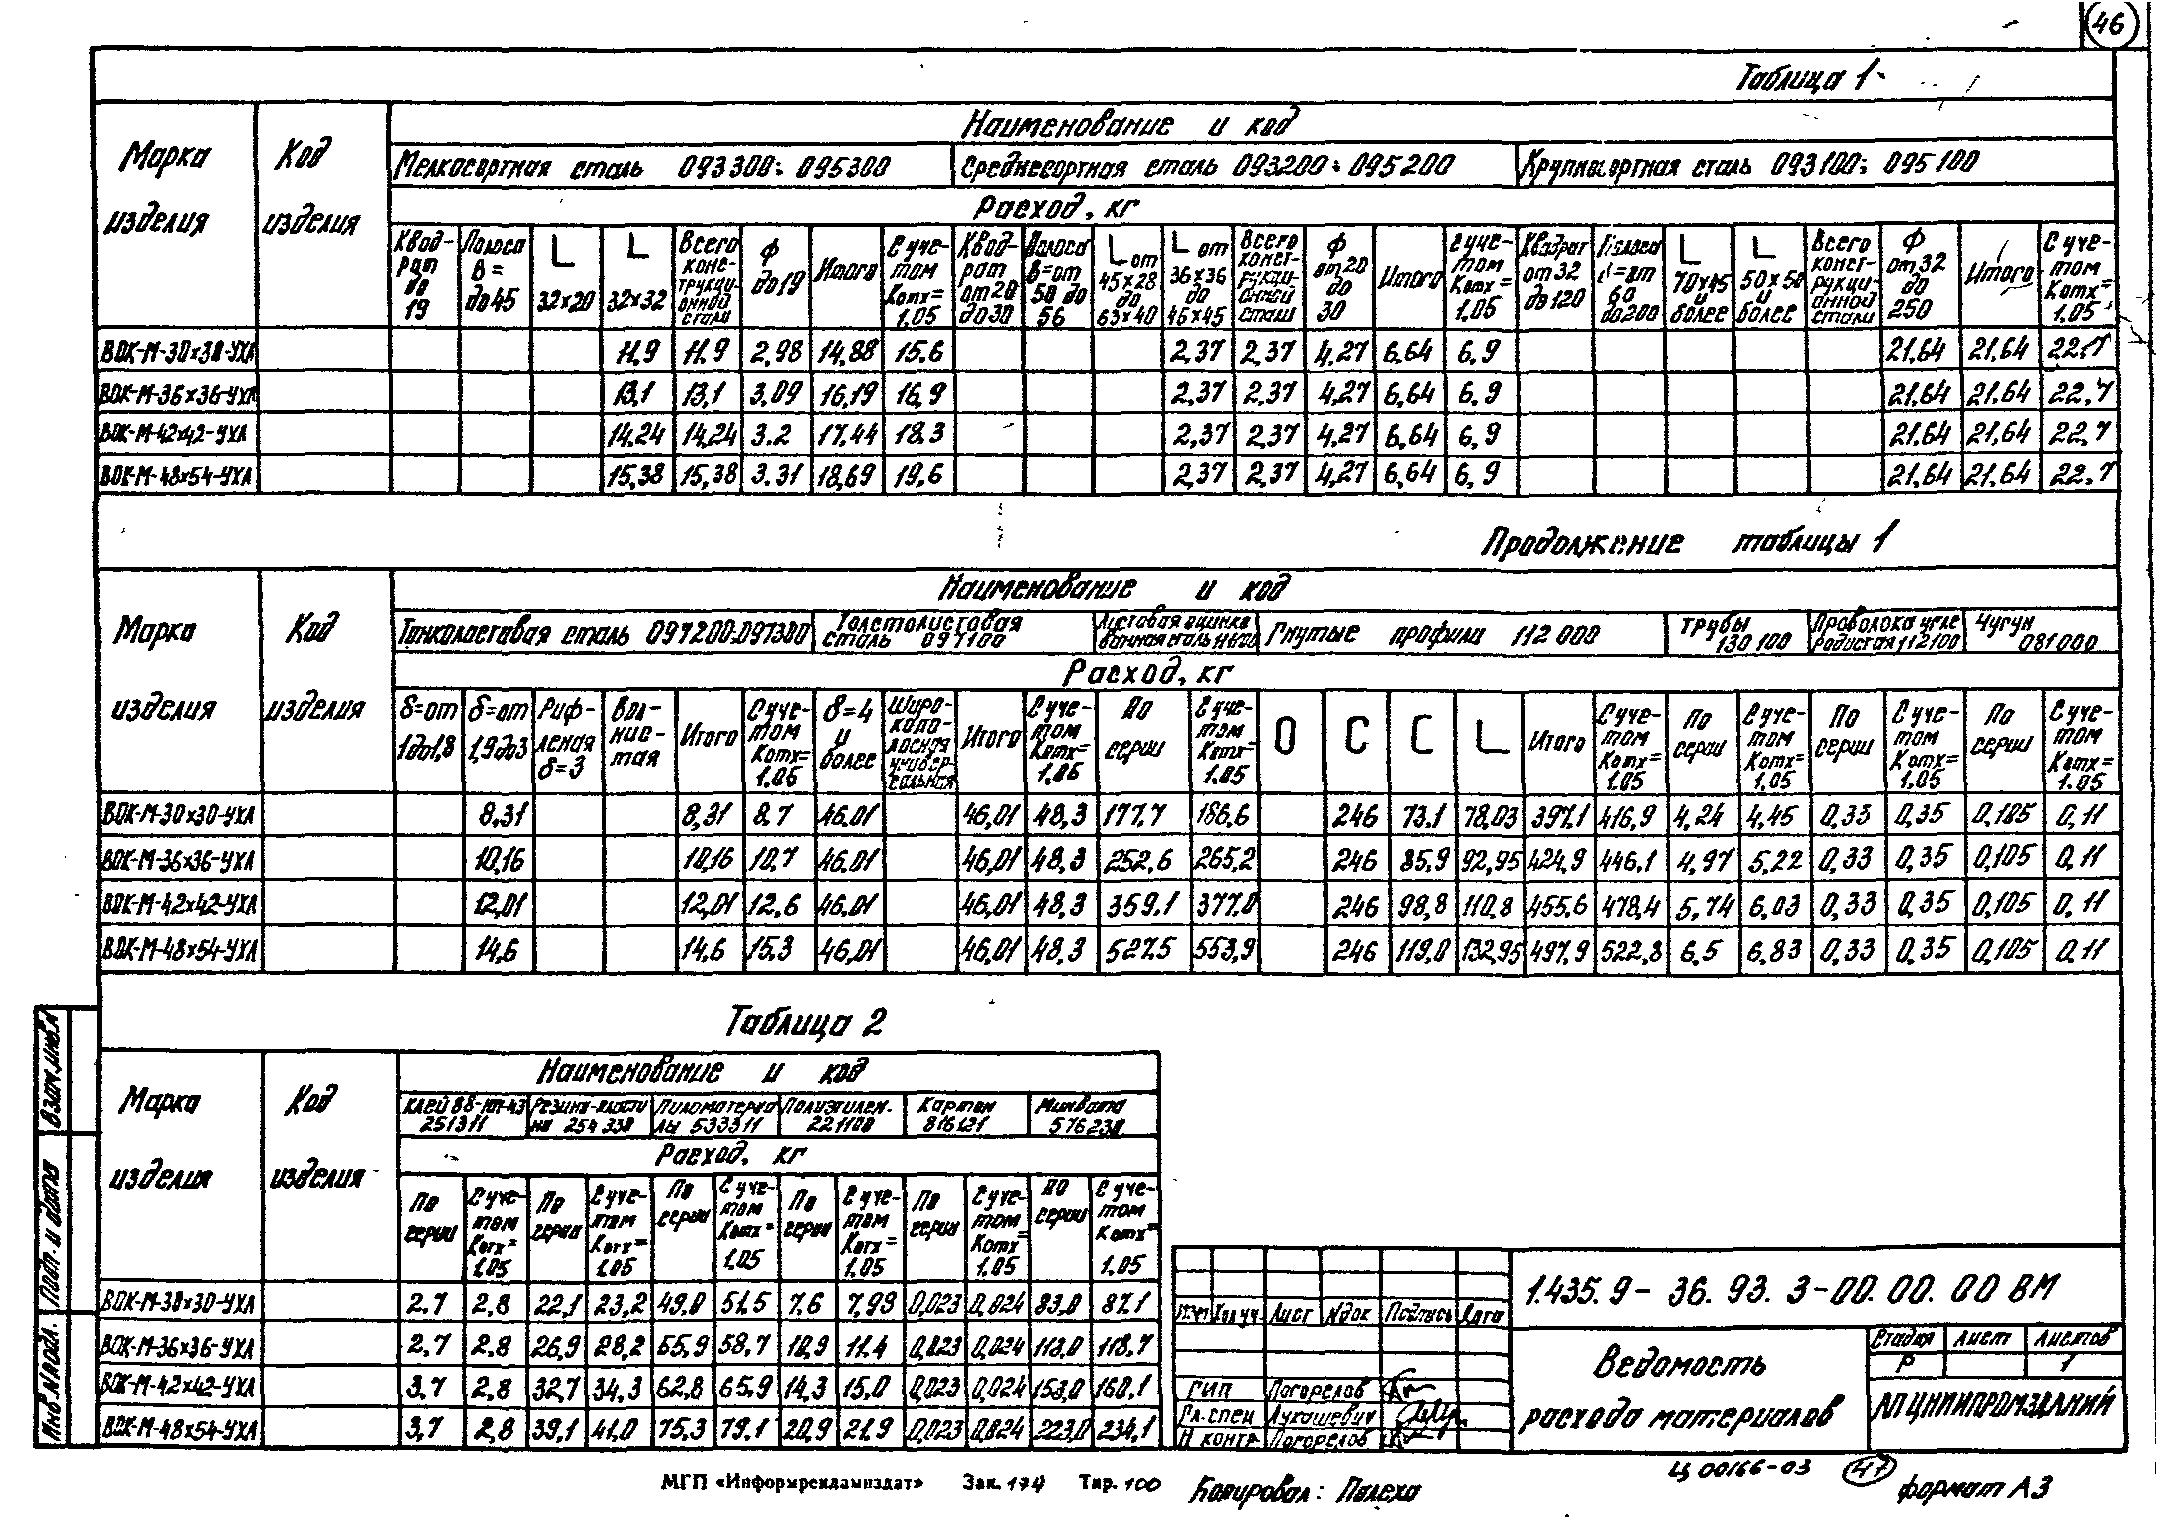 46
Таблица 1
Марка изделия
Код изделия
Наименование и код
Мелкосортная сталь 093300; 095300
Среднесортная сталь 093200; 095200
Крупносортная сталь 093100; 095100
Расход, кг
Квадрат до 19
Полоса B= до 45
L 32×20
L 32×32
Всего конструкционной стали
Ф до 19
Итого
С учетом Kотх= 1.05
Квадрат от 20 до 30
Полоса B=от 50 до 56
L от 45×28 до 63×40
L от 36×36 до 45×45
Всего конструкционной стали
Ф от 20 до 30
Итого
С учетом Kотх= 1.05
Квадрат от 32 до 120
Полоса от 60 до 200
L 70×45 и более
L 50×50 и более
Всего конструкционной стали
Ф от 32 до 250
Итого
С учетом Kотх= 1.05
ВОК-М-30×30-УХЛ 11.9 11.9 2.98 14.88 15.6 2,37 2,37 4,27 6,64 6.9 21.64 21.64 22.7
ВОК-М-36×36-УХЛ 13,1 13,1 3.09 16,19 16,9 2,37 2.37 4,27 6,64 6.9 21.64 21.64 22,7
ВОК-М-42×42-УХЛ 14.24 14,24 3.2 17.44 18.3 2,37 2,37 4,27 6,64 6,9 21.64 21.64 22,7
ВОК-М-48×54-УХЛ 15,38 15,38 3.31 18,69 19,6 2,37 2.37 4,27 6,64 6,9 21.64 21.64 22.7
Продолжение таблицы 1
Марка изделия
Код изделия
Наименование и код
Тонколистовая сталь 097200-097300
Толстолистовая сталь 097100
Листовая оцинкованная сталь
Гнутые профила 112 000
Трубы 130 100
Проволока углеродистая 112100
Чугун 081000
Расход, кг
δ=от 1 до 1,8
δ=от 1,9 до 3
Рифленая δ=3
Волнистая
Итого
С учетом Kотх= 1.05
δ=4 и более
Широкополосная универсальная
Итого
С учетом Kотх= 1.05
По серии
С учетом Kотх= 1.05
O
C
C
L
Итого
С учетом Kотх= 1.05
По серии
С учетом Kотх= 1.05
По серии
С учетом Kотх= 1.05
По серии
С учетом Kотх= 1.05
ВОК-М-30×30-УХЛ 8,31 8,31 8.7 46.01 46,01 48,3 177.7 186.6 246 73.1 78.03 397.1 416,9 4,24 4,45 0,33 0,35 0,105 0,11
ВОК-М-36×36-УХЛ 10,16 10,16 10.7 46.01 46,01 48,3 252,6 265,2 246 85,9 92,95 424,9 446,1 4,97 5,22 0,33 0,35 0,105 0,11
ВОК-М-42×42-УХЛ 12,01 12,01 12.6 46.01 46,01 48,3 359.1 377.0 246 98,8 110.8 455.6 478,4 5,74 6.03 0,33 0,35 0,105 0,11
ВОК-М-48×54-УХЛ 14.6 14.6 15.3 46,01 46,01 48,3 527.5 553,9 246 119.0 132,95 497.9 522,8 6.5 6,83 0,33 0,35 0,105 0,11
Таблица 2
Марка изделия
Код изделия
Наименование и код
Клей 88-НП-43 251311
Резина-пласти на 254 330
Пиломатериалы 533311
Полиэтилен. 221100
Картон 816121
Минвата 576230
Расход, кг
По серии
С учетом Kотх= 1.05
По серии
С учетом Kотх= 1.05
По серии
С учетом Kотх= 1.05
По серии
С учетом Kотх= 1.05
По серии
С учетом Kотх= 1.05
По серии
С учетом Kотх= 1.05
ВОК-М-30×30-УХЛ 2.7 2,8 22,1 23,2 49.0 51.5 7,6 7,99 0,023 0,024 83.0 87.1
ВОК-М-36×36-УХЛ 2,7 2.8 26,9 28,2 55,9 58,7 10,9 11.4 0,023 0,024 113.0 118,7
ВОК-М-42×42-УХЛ 3.7 2,8 32,7 34,3 62,8 65,9 14,3 15.0 0,023 0,024 153,0 160,1
ВОК-М-48×54-УХЛ 3,7 2,8 39,1 41.0 75,3 79.1 20,9 21.9 0,023 0,024 223,0 234,1
Взам.инв.№
Подп. и дата
Инв.№подл.
Изм Кол.уч. Лист Nдок Подпись Дата
ГИП Погорелов
Гл.спец Лукашевич
Н контр Погорелов
1.435.9-36.93.3-00.00.00 ВМ
Ведомость расхода материалов
Стадия Лист Листов
Р 1
АП ЦНИИПРОМЗДАНИЙ
МГП «Информрекламиздат» Зак. 174 Тир. 100
Копировал: Палеха
Ц 00166-03
47
формат А3